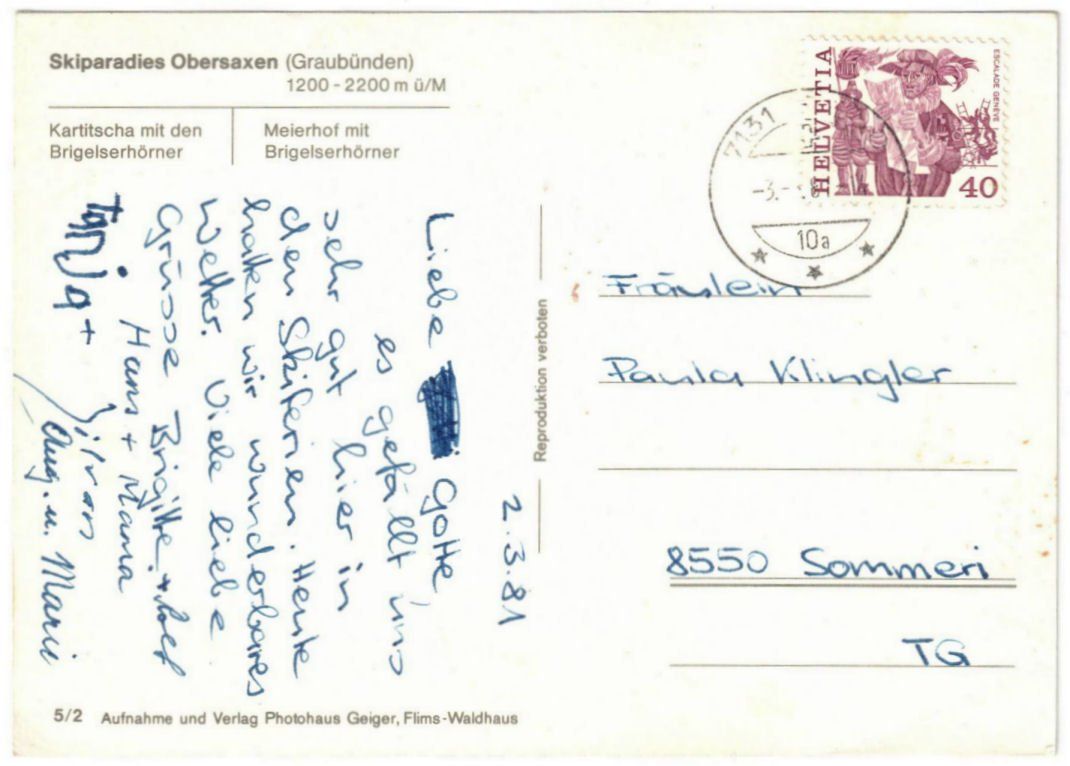 Skiparadies Obersaxen (Graubünden)
1200 - 2200 m ü/M
Kartitscha mit den
Brigelserhörner
Meierhof mit
Brigelserhörner
2.3.81
Liebe Gotte,
es gefällt uns
sehr gut hier in
den Skiferien. Heute
hatten wir wunderbares
Wetter. Viele liebe
Grüsse Brigitte + Rolf
Hans + Mama
Tanja +
Aug. u. Marii
Reproduktion verboten
HELVETIA
ESCALADE GENÈVE
40
7131
-3.-
10a
Fräulein
Paula Klingler
8550 Sommeri
TG
5/2 Aufnahme und Verlag Photohaus Geiger, Flims-Waldhaus